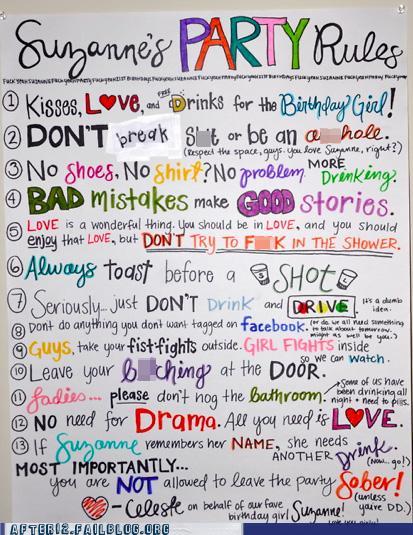 Suzanne's PARTY Rules
① Kisses, LOVE, and FREE Drinks for the Birthday Girl!
② DON'T break S t or be an a hole.
(Respect the space, guys. you love Suzanne, right?)
③ No Shoes, No shirt? No problem. MORE Drinking.
④ BAD mistakes make GOOD stories.
⑤ LOVE is a wonderful thing. You should be in LOVE, and you should
enjoy that LOVE, but DON'T TRY TO F K IN THE SHOWER.
⑥ Always toast before a SHOT
⑦ Seriously... just DON'T Drink and DRIVE. It's a dumb idea.
⑧ Dont do anything you dont want tagged on facebook. (or do. we all need something to talk about tomorrow. might as well be you.)
⑨ Guys, take your fist-fights outside. GIRL FIGHTS inside
so we can watch.
⑩ Leave your b ching at the DOOR.
⑪ Ladies... please don't hog the bathroom. some of us have been drinking all night + need to piss.
⑫ NO need for Drama. All you need is LOVE.
⑬ If Suzanne remembers her NAME, she needs
ANOTHER Drink. (Now.. go!)
MOST IMPORTANTLY...
you are NOT allowed to leave the party Sober!
(unless you're DD.)
- Celeste on behalf of our fave
birthday girl Suzanne!
AFTER12.FAILBLOG.ORG